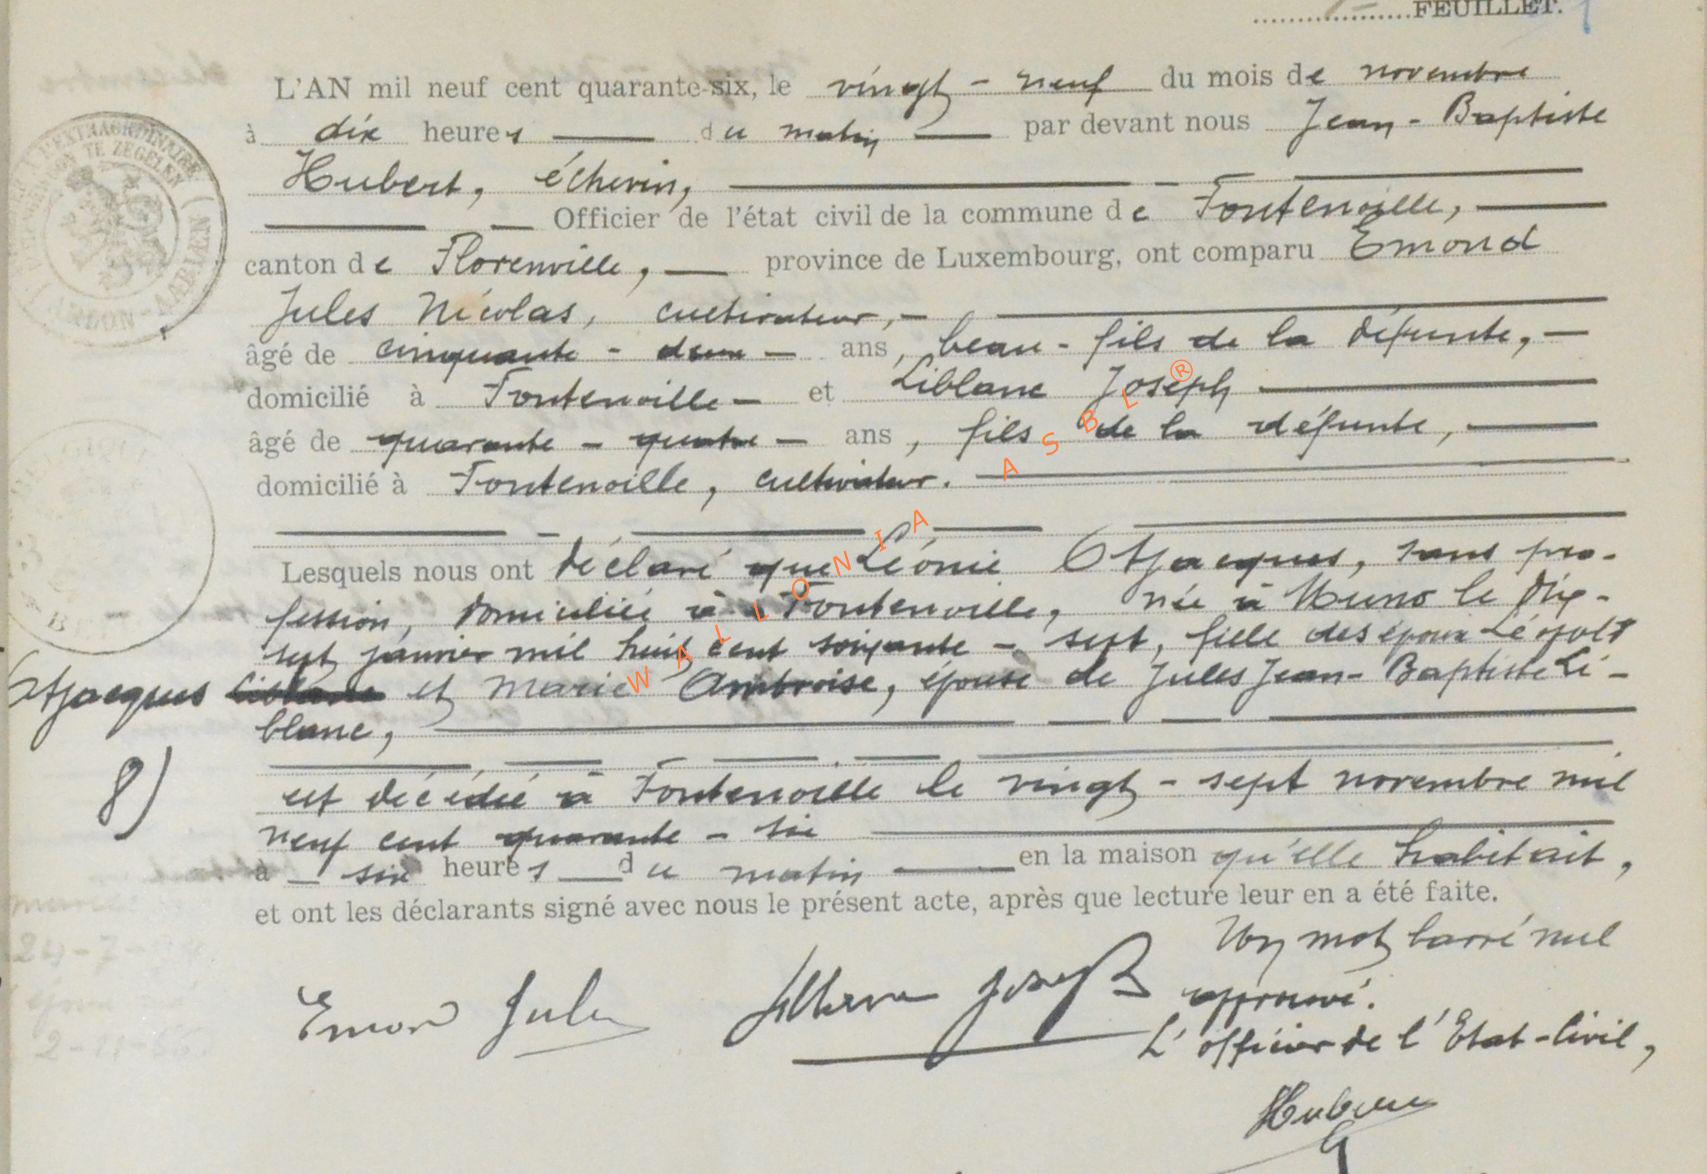 FEUILLET.
L'AN mil neuf cent quarante-six, le vingt-neuf du mois de novembre
à dix heures du matin par devant nous Jean-Baptiste
Hubert, échevin,
Officier de l'état civil de la commune de Fontenoille,
canton de Florenville, province de Luxembourg, ont comparu Emond
Jules Nicolas, cultivateur,
âgé de cinquante-deux ans, beau-fils de la défunte,
domicilié à Fontenoille et Liblanc Joseph
âgé de quarante-quatre ans, fils de la défunte,
domicilié à Fontenoille, cultivateur.
Lesquels nous ont déclaré que Léonie Otjacques, sans pro-
fession, domiciliée à Fontenoille, née à Muno le dix-
sept janvier mil huit cent soixante-sept, fille des époux Léopold
Otjacques et Marie Ambroise, épouse de Jules Jean-Baptiste Li-
blanc,
8)
est décédée à Fontenoille le vingt-sept novembre mil
neuf cent quarante-six
à six heures du matin en la maison qu'elle habitait,
et ont les déclarants signé avec nous le présent acte, après que lecture leur en a été faite.
Un mot barré nul
approuvé.
Emond Jules Liblanc Joseph
L'officier de l'Etat-Civil,
Hubert
WALLONIA ASBL ®
L'EXTRAORDINAIRE
TE ZEGELEN
ARLON-AARLEN
24-7-
2-11-66